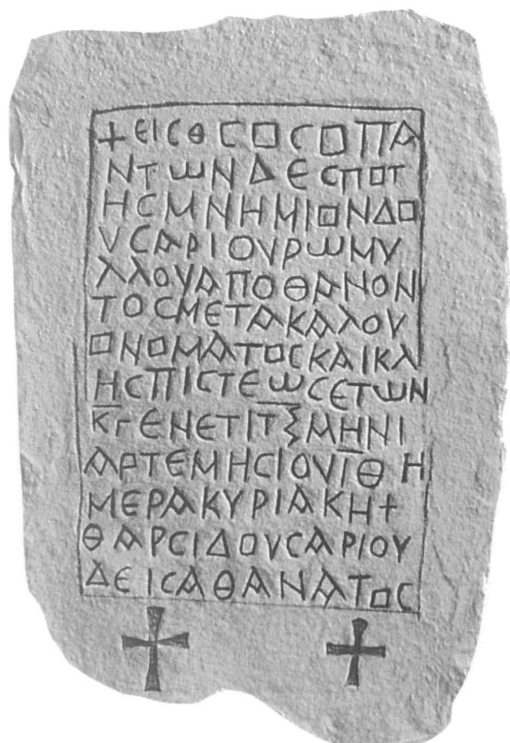 +ΕΙϹΘϹΟϹΟΠΑ
ΝΤωΝΔΕϹΠΟΤ
ΗϹΜΝΗΜΙΟΝΔΟ
ΥϹΑΡΙΟΥΡωΜΥ
ΛΛΟΥΑΠΟΘΑΝΟΝ
ΤΟϹΜΕΤΑΚΑΛΟΥ
ΟΝΟΜΑΤΟϹΚΑΙΚΛ
ΗϹΠΙϹΤΕωϹΕΤωΝ
ΚΓΕΝΕΤΙΤΞΜΗΝΙ
ΑΡΤΕΜΗϹΙΟΥΙΘΗ
ΜΕΡΑΚΥΡΙΑΚΗ+
ΘΑΡϹΙΔΟΥϹΑΡΙΟΥ
ΔΕΙϹΑΘΑΝΑΤΟϹ